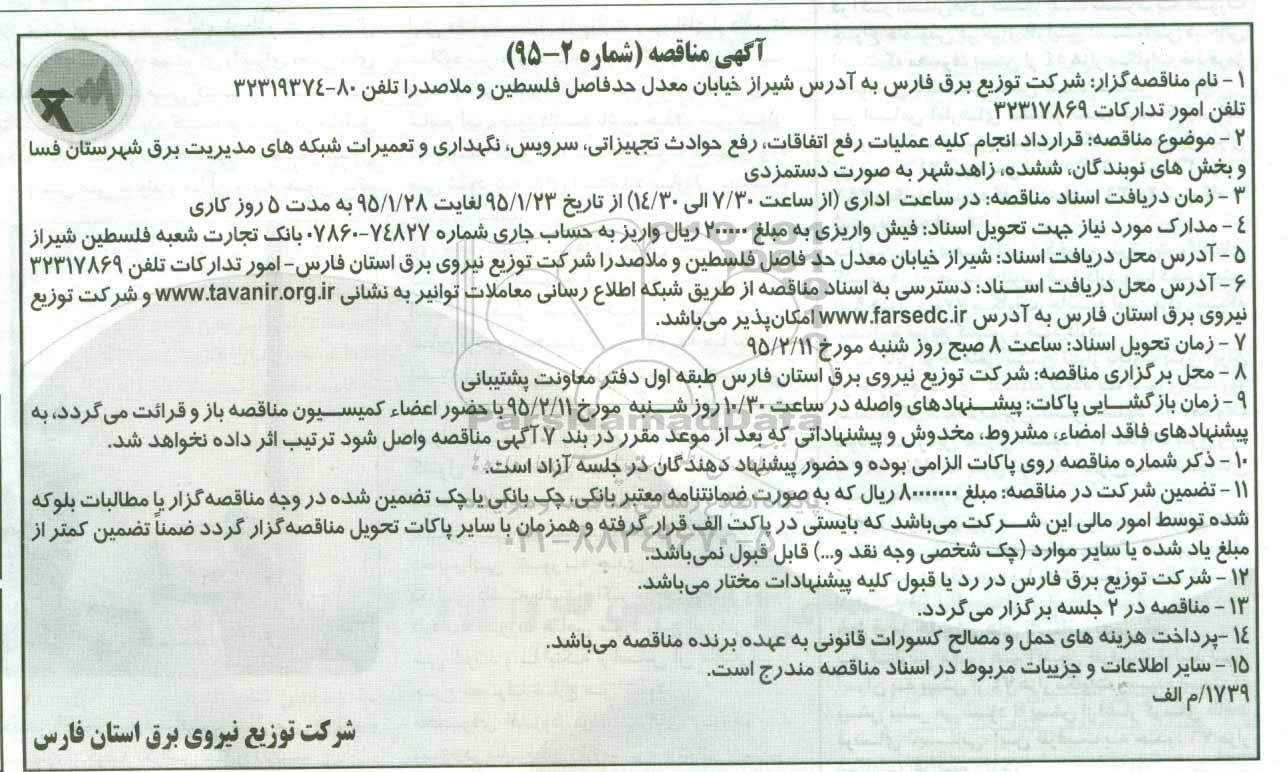 آگهی مناقصه (شماره ۲-۹۵)
۱- نام مناقصه‌گزار: شرکت توزیع برق فارس به آدرس شیراز خیابان معدل حدفاصل فلسطین و ملاصدرا تلفن ۸۰-۳۲۳۱۹۳۷۴
تلفن امور تدارکات ۳۲۳۱۷۸۶۹
۲- موضوع مناقصه: قرارداد انجام کلیه عملیات رفع اتفاقات، رفع حوادث تجهیزاتی، سرویس، نگهداری و تعمیرات شبکه های مدیریت برق شهرستان فسا
و بخش های نوبندگان، ششده، زاهدشهر به صورت دستمزدی
۳- زمان دریافت اسناد مناقصه: در ساعت اداری (از ساعت ۷/۳۰ الی ۱۴/۳۰) از تاریخ ۹۵/۱/۲۳ لغایت ۹۵/۱/۲۸ به مدت ۵ روز کاری
۴- مدارک مورد نیاز جهت تحویل اسناد: فیش واریزی به مبلغ ۲۰۰۰۰۰ ریال واریز به حساب جاری شماره ۷۴۸۲۷-۰۷۸۶۰ بانک تجارت شعبه فلسطین شیراز
۵- آدرس محل دریافت اسناد: شیراز خیابان معدل حد فاصل فلسطین و ملاصدرا شرکت توزیع نیروی برق استان فارس- امور تدارکات تلفن ۳۲۳۱۷۸۶۹
۶- آدرس محل دریافت اسـناد: دسترسی به اسناد مناقصه از طریق شبکه اطلاع رسانی معاملات توانیر به نشانی www.tavanir.org.ir و شرکت توزیع
نیروی برق استان فارس به آدرس www.farsedc.ir امکان‌پذیر می‌باشد.
۷- زمان تحویل اسناد: ساعت ۸ صبح روز شنبه مورخ ۹۵/۲/۱۱
۸- محل برگزاری مناقصه: شرکت توزیع نیروی برق استان فارس طبقه اول دفتر معاونت پشتیبانی
۹- زمان بازگشـایی پاکات: پیشـنهادهای واصله در ساعت ۱۰/۳۰ روز شـنبه مورخ ۹۵/۲/۱۱ با حضور اعضاء کمیسـیون مناقصه باز و قرائت می‌گردد، به
پیشنهادهای فاقد امضاء، مشروط، مخدوش و پیشنهاداتی که بعد از موعد مقرر در بند ۷ آگهی مناقصه واصل شود ترتیب اثر داده نخواهد شد.
۱۰- ذکر شماره مناقصه روی پاکات الزامی بوده و حضور پیشنهاد دهندگان در جلسه آزاد است.
۱۱- تضمین شرکت در مناقصه: مبلغ ۸۰۰۰۰۰۰۰ ریال که به صورت ضمانتنامه معتبر بانکی، چک بانکی یا چک تضمین شده در وجه مناقصه‌گزار یا مطالبات بلوکه
شده توسط امور مالی این شـرکت می‌باشد که بایستی در پاکت الف قرار گرفته و همزمان با سایر پاکات تحویل مناقصه‌گزار گردد ضمناً تضمین کمتر از
مبلغ یاد شده یا سایر موارد (چک شخصی وجه نقد و...) قابل قبول نمی‌باشد.
۱۲- شرکت توزیع برق فارس در رد یا قبول کلیه پیشنهادات مختار می‌باشد.
۱۳- مناقصه در ۲ جلسه برگزار می‌گردد.
۱۴-پرداخت هزینه های حمل و مصالح کسورات قانونی به عهده برنده مناقصه می‌باشد.
۱۵- سایر اطلاعات و جزییات مربوط در اسناد مناقصه مندرج است.
۱۷۳۹/م الف
شرکت توزیع نیروی برق استان فارس
ParsNamadData
۰۲۱-۸۸۳۴۹۶۷۰-۵